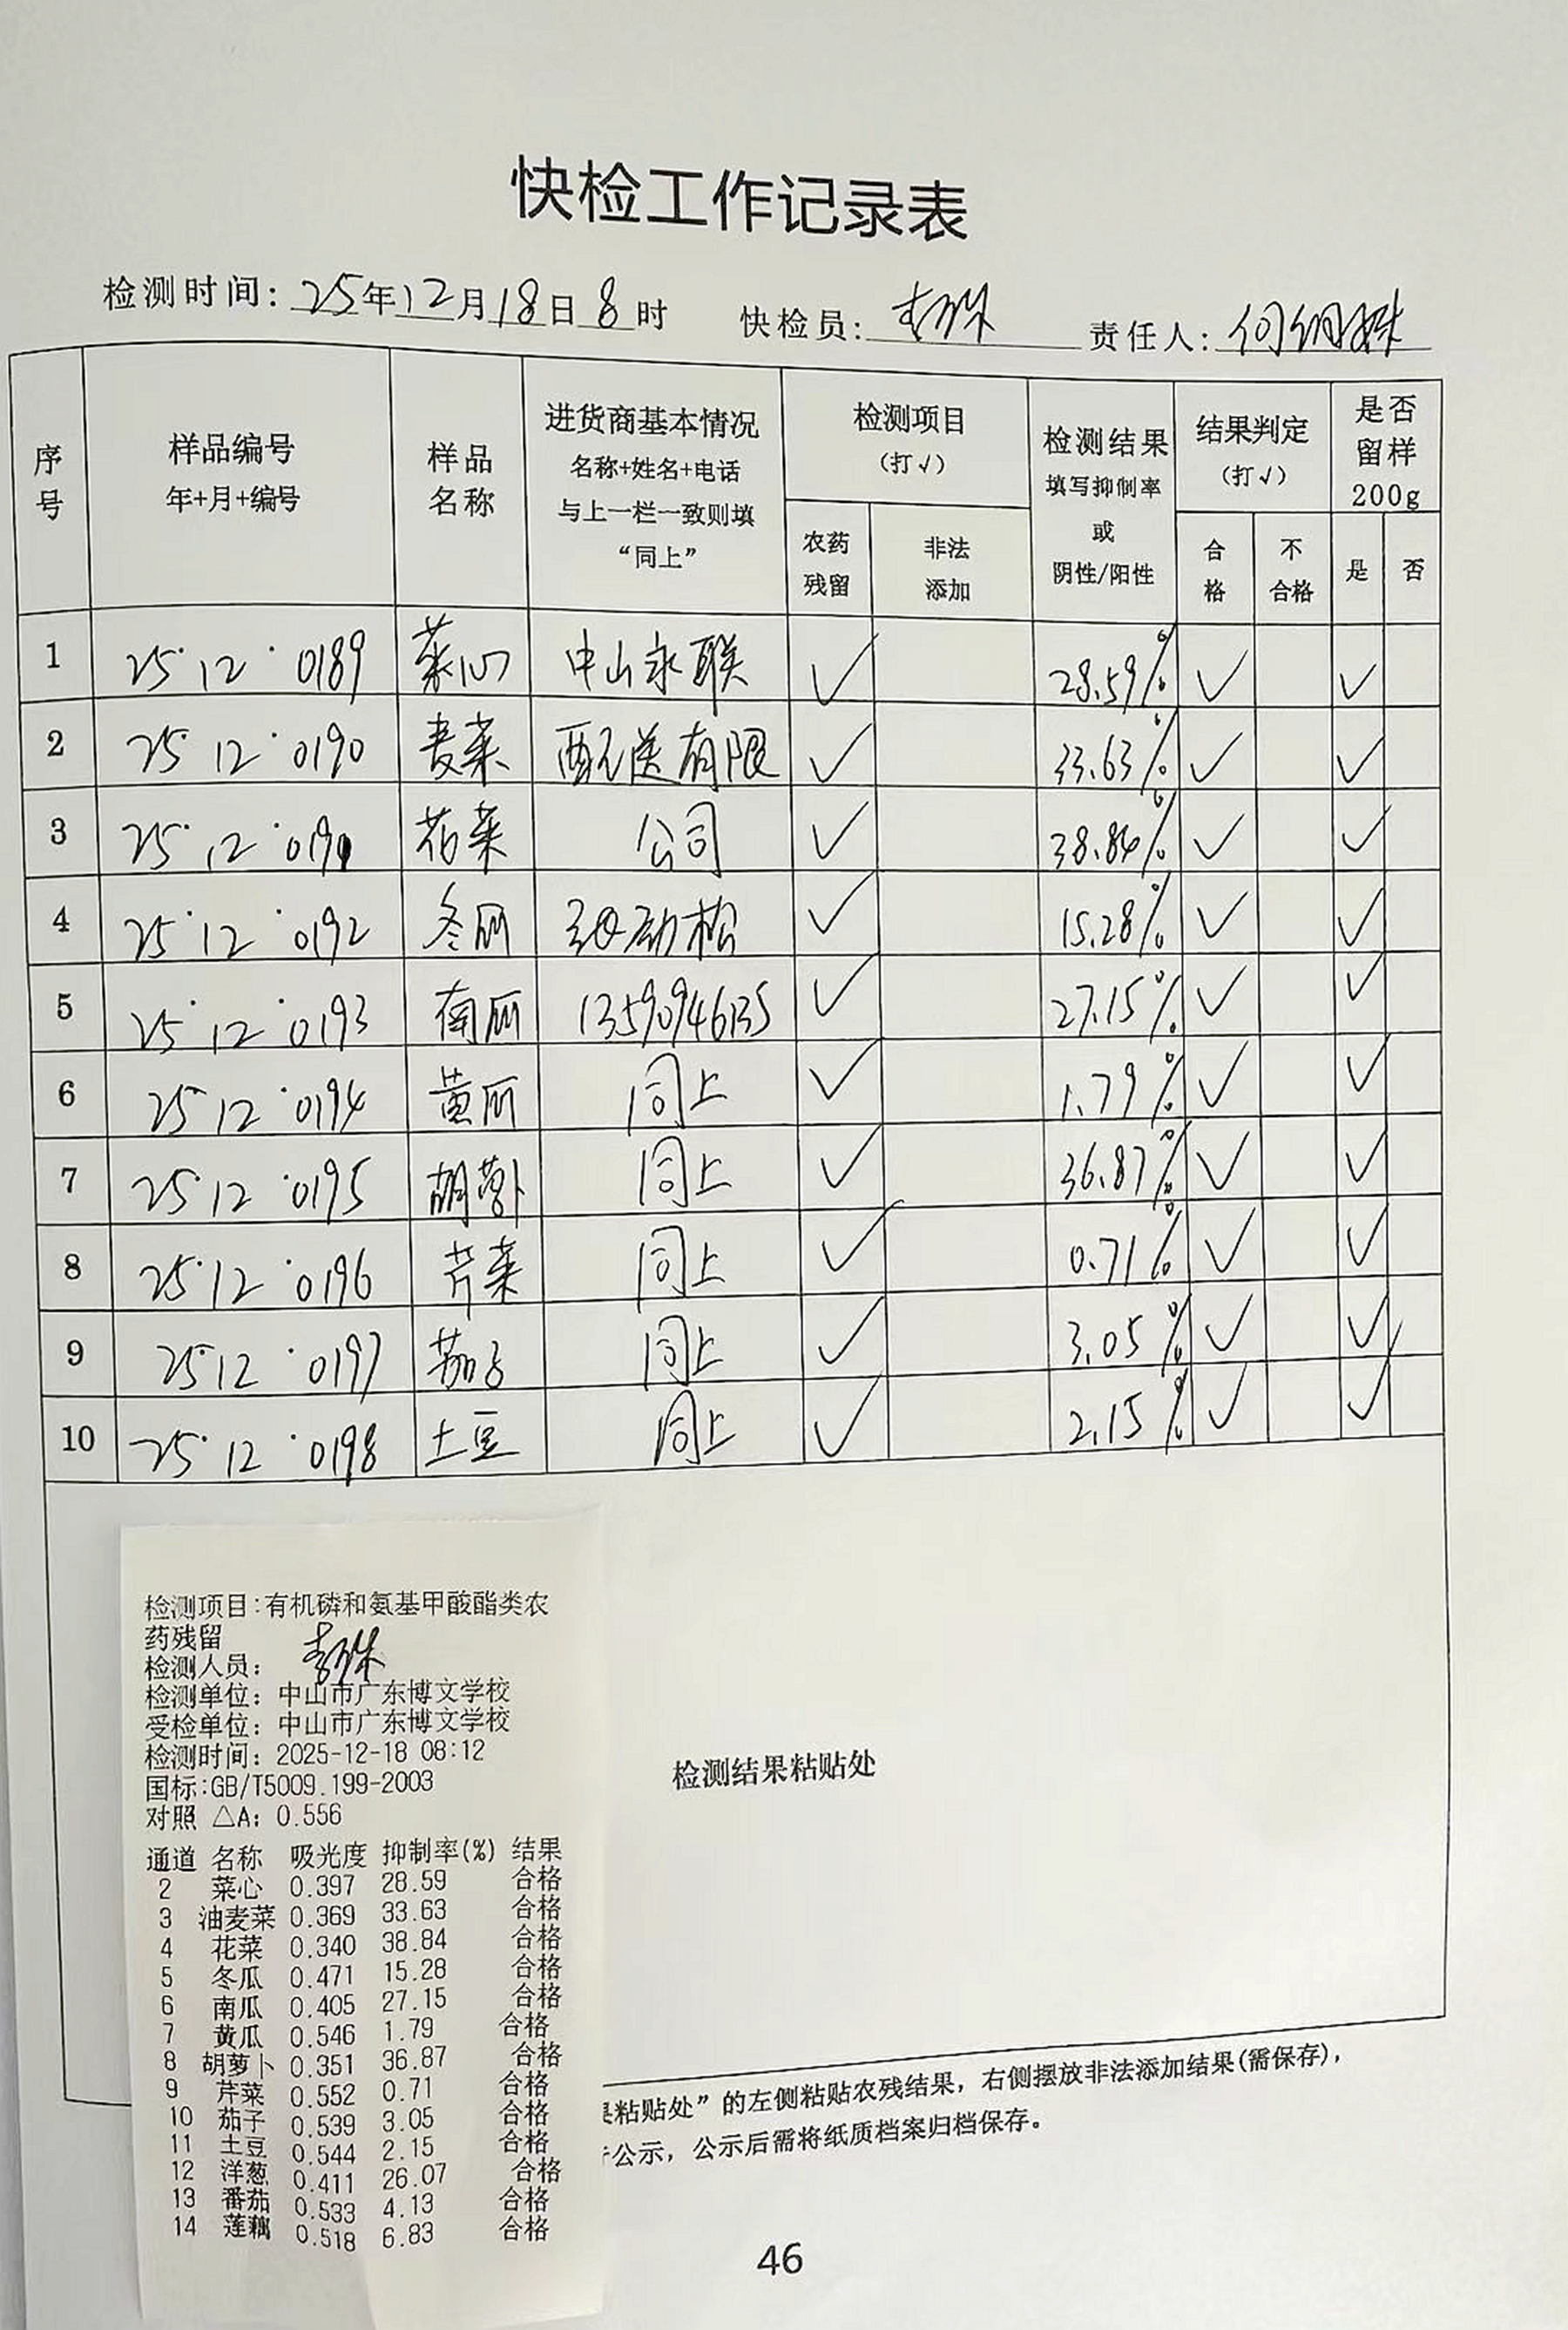 快检工作记录表
检测时间: 25年12月18日8时 快检员: 责任人:
序号 样品编号 年+月+编号 样品名称 进货商基本情况 名称+姓名+电话 与上一栏一致则填“同上” 检测项目 (打√) 农药残留 非法添加 检测结果 填写抑制率 或 阴性/阳性 结果判定 (打√) 合格 不合格 是否留样200g 是 否
1 25·12·0189 菜心 中山永联 √ 28.59% √ √
2 25 12·0190 麦菜 配送有限 √ 33.63% √ √
3 25·12·0191 花菜 公司 √ 38.84% √ √
4 25·12·0192 冬瓜 劲松 √ 15.28% √ √
5 25·12·0193 南瓜 √ 27.15% √ √
6 25·12·0194 黄瓜 同上 √ 1.79% √ √
7 25·12·0195 胡萝卜 同上 √ 36.87% √ √
8 25·12·0196 芹菜 同上 √ 0.71% √ √
9 25·12·0197 茄子 同上 √ 3.05% √ √
10 25·12·0198 土豆 同上 √ 2.15% √ √
检测结果粘贴处
检测项目:有机磷和氨基甲酸酯类农
药残留
检测人员:
检测单位: 中山市广东博文学校
受检单位: 中山市广东博文学校
检测时间: 2025-12-18 08:12
国标:GB/T5009.199-2003
对照 △A: 0.556
通道 名称 吸光度 抑制率(%) 结果
2 菜心 0.397 28.59 合格
3 油麦菜 0.369 33.63 合格
4 花菜 0.340 38.84 合格
5 冬瓜 0.471 15.28 合格
6 南瓜 0.405 27.15 合格
7 黄瓜 0.546 1.79 合格
8 胡萝卜 0.351 36.87 合格
9 芹菜 0.552 0.71 合格
10 茄子 0.539 3.05 合格
11 土豆 0.544 2.15 合格
12 洋葱 0.411 26.07 合格
13 番茄 0.533 4.13 合格
14 莲藕 0.518 6.83 合格
粘贴处”的左侧粘贴农残结果，右侧摆放非法添加结果(需保存)，
公示，公示后需将纸质档案归档保存。
46